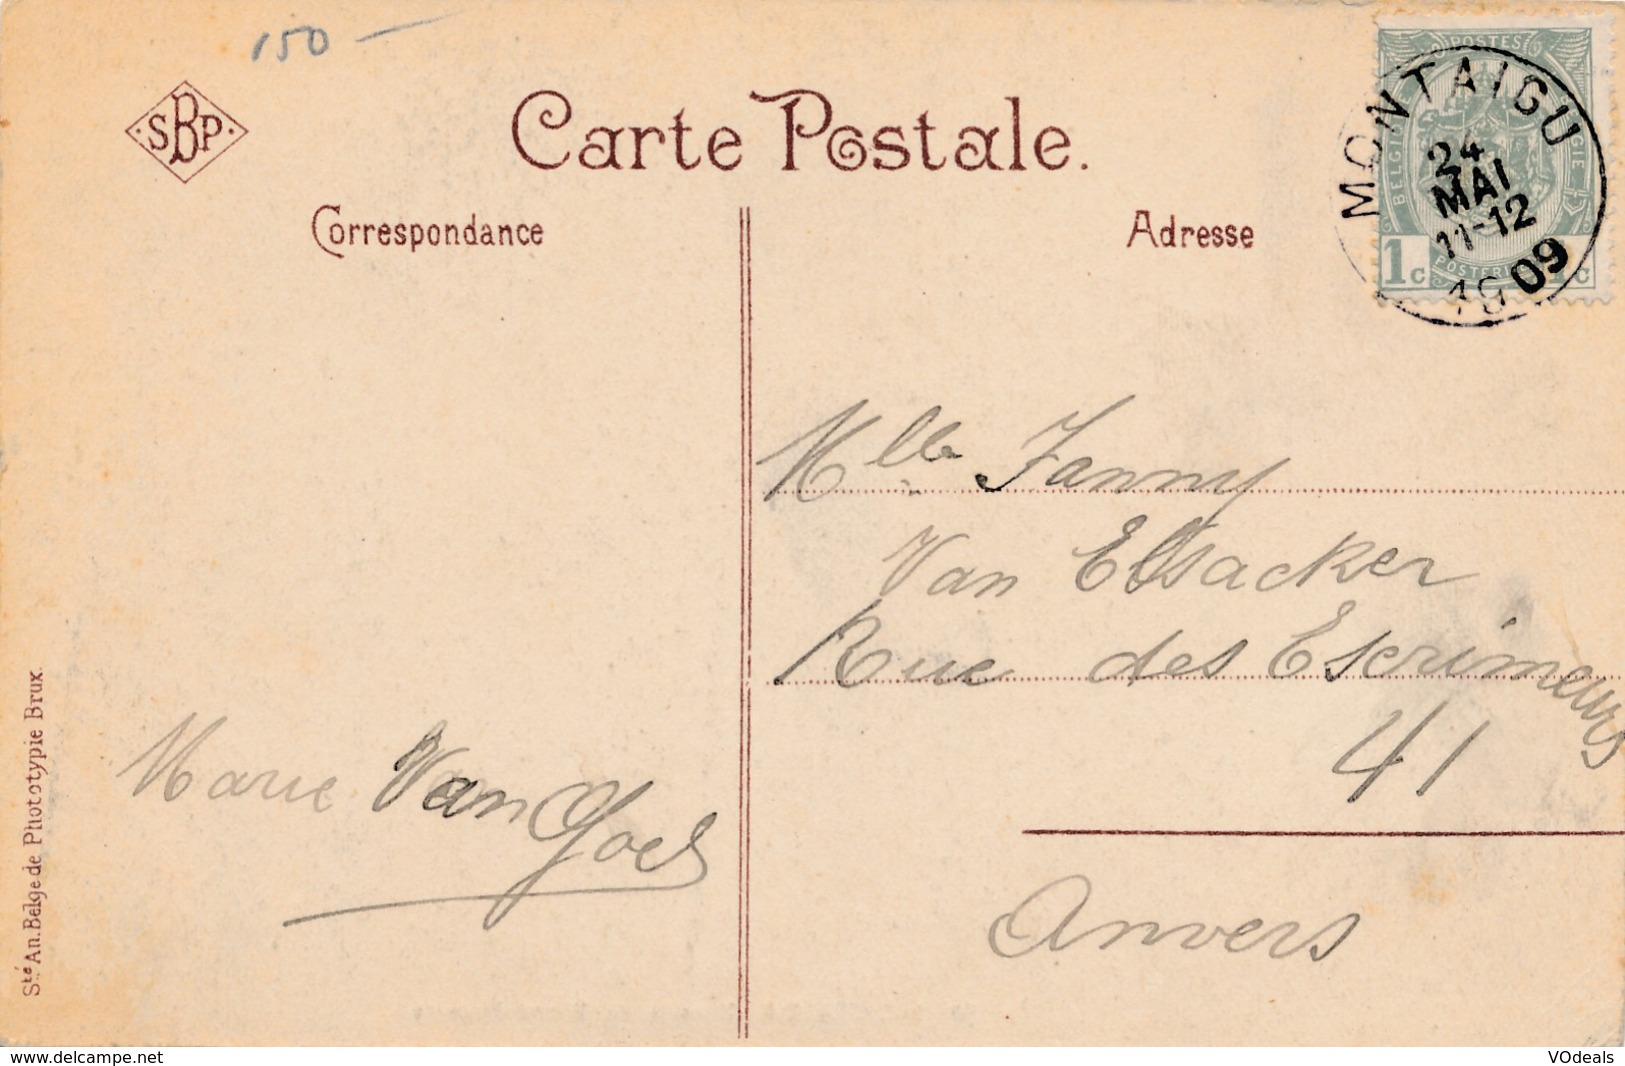 150 —
SBP
Carte Postale.
Correspondance
Adresse
MONTAIGU
24
MAI
11-12
1909
POSTES
BELGIQUE
1c
Mlle Fanny
Van Elsacker
Rue des Escrimeurs
41
Anvers
Marie Van Goel
Sté An. Belge de Phototypie Brux.
www.delcampe.net
VOdeals